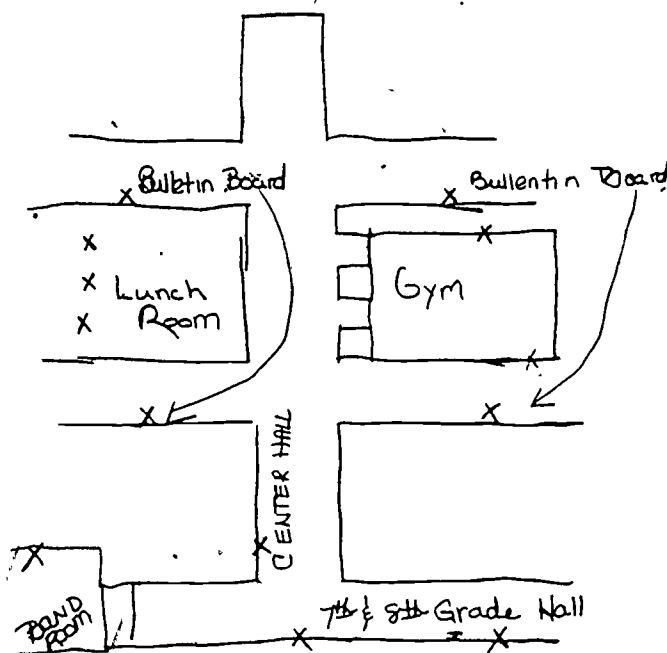 Bulletin Board
Bullentin Board
X
X
X
X
X
X
Lunch
Room
Gym
X
X
X
CENTER HALL
X
X
BAND
ROOM
7th & 8th Grade Hall
X
X